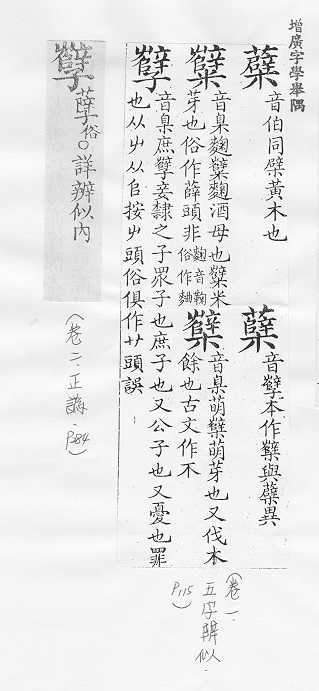 增廣字學舉隅
蘗 音伯同檗黃木也
蘖 音孼本作櫱與蘗異
糱 音臬麴糱麴酒母也糱米
芽也俗作薛頭非麴音鞠
俗作麯
櫱 音臬萌櫱萌芽也又伐木
餘也古文作不
孼 音臬庶孼妾隸之子眾子也庶子也又公子也又憂也罪
也从屮从㠯按屮頭俗俱作艹頭誤
(卷一.
五字辨似.
P115)
孼 孽俗○詳辨似內
(卷二.正譌.P84)